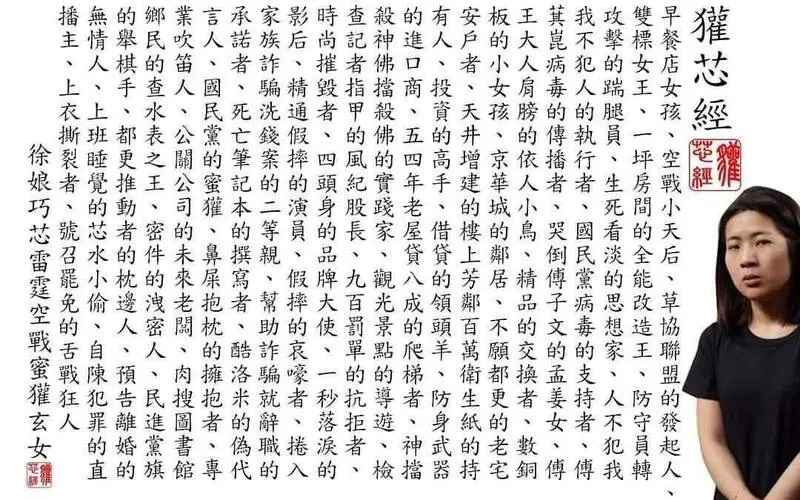 獾芯經
獾芯經
早餐店女孩、空戰小天后、草協聯盟的發起人、
雙標女王、一坪房間的全能改造王、防守員轉
攻擊的踹腿員、生死看淡的思想家、人不犯我
我不犯人的執行者、國民黨病毒的支持者、傅
萁崑病毒的傳播者、哭倒傅子文的孟姜女、傅
王大人肩膀的依人小鳥、精品的交換者、數銅
板的小女孩、京華城的鄰居、不願都更的老宅
安戶者、天井增建的樓上芳鄰百萬衛生紙的持
有人、投資的高手、借貸的領頭羊、防身武器
的進口商、五四年老屋貸八成的爬梯者、神擋
殺神佛擋殺佛的實踐家、觀光景點的導遊、檢
查記者指甲的風紀股長、九百罰單的抗拒者、
時尚摧毀者、四頭身的品牌大使、一秒落淚的
影后、精通假摔的演員、假摔的哀嚎者、捲入
家族詐騙洗錢案的二等親、幫助詐騙就辭職的
承諾者、死亡筆記本的撰寫者、酷洛米的偽代
言人、國民黨的蜜獾、鼻屎抱枕的擁抱者、專
業吹笛人、公關公司的未來老闆、肉搜圖書館
鄉民的查水表之王、密件的洩密人、民進黨旗
的舉棋手、都更推動者的枕邊人、預告離婚的
無情人、上班睡覺的芯水小偷、自陳犯罪的直
播主、上衣撕裂者、號召罷免的舌戰狂人
徐娘巧芯雷霆空戰蜜獾玄女
獾芯經